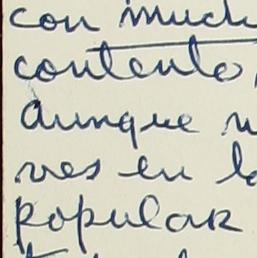 con much
contento,
aunque n
ves en lo
popular